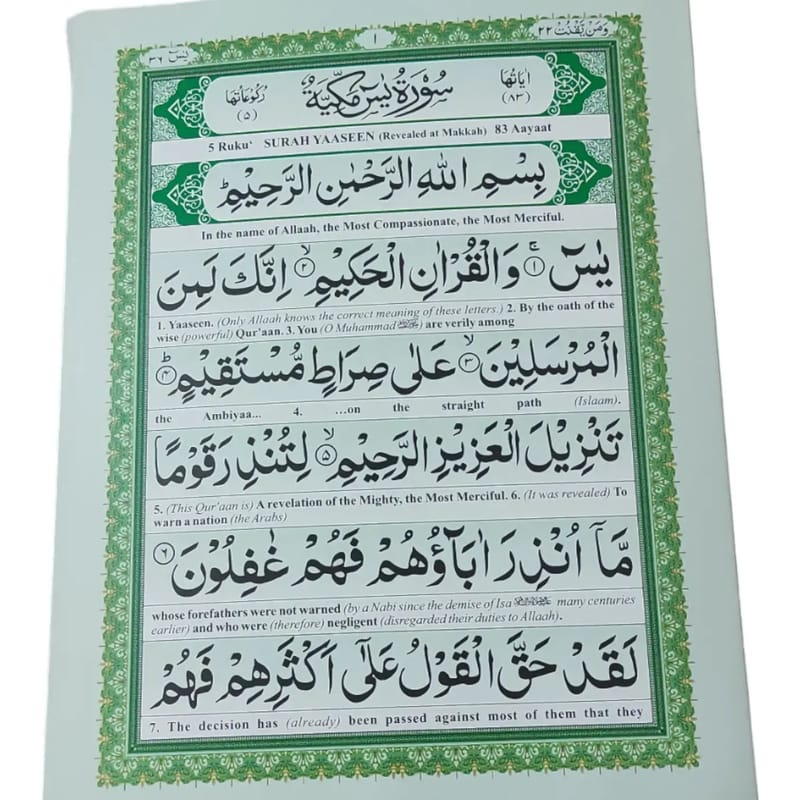 وَمَنْ يَّقْنُتُ ٢٢
١
يٰسٓ ٣٦
اٰيَاتُهَا (٨٣)
سُوْرَةُ يٰسٓ مَكِّيَّةٌ
رُكُوْعَاتُهَا (٥)
5 Ruku‘ SURAH YAASEEN (Revealed at Makkah) 83 Aayaat
بِسْمِ اللهِ الرَّحْمٰنِ الرَّحِيْمِ ؕ
In the name of Allaah, the Most Compassionate, the Most Merciful.
يٰسٓ ۚ ١ وَالْقُرْاٰنِ الْحَكِيْمِ ۙ ٢ اِنَّكَ لَمِنَ
1. Yaaseen. (Only Allaah knows the correct meaning of these letters.) 2. By the oath of the
wise (powerful) Qur'aan. 3. You (O Muhammad ﷺ) are verily among
الْمُرْسَلِيْنَ ۙ ٣ عَلٰى صِرَاطٍ مُّسْتَقِيْمٍ ؕ ٤
the Ambiyaa... 4. ...on the straight path (Islaam).
تَنْزِيْلَ الْعَزِيْزِ الرَّحِيْمِ ۙ ٥ لِتُنْذِرَ قَوْمًا
5. (This Qur'aan is) A revelation of the Mighty, the Most Merciful. 6. (It was revealed) To
warn a nation (the Arabs)
مَّاۤ اُنْذِرَ اٰبَآؤُهُمْ فَهُمْ غٰفِلُوْنَ ٦
whose forefathers were not warned (by a Nabi since the demise of Isa many centuries
earlier) and who were (therefore) negligent (disregarded their duties to Allaah).
لَقَدْ حَقَّ الْقَوْلُ عَلٰۤى اَكْثَرِهِمْ فَهُمْ
7. The decision has (already) been passed against most of them that they